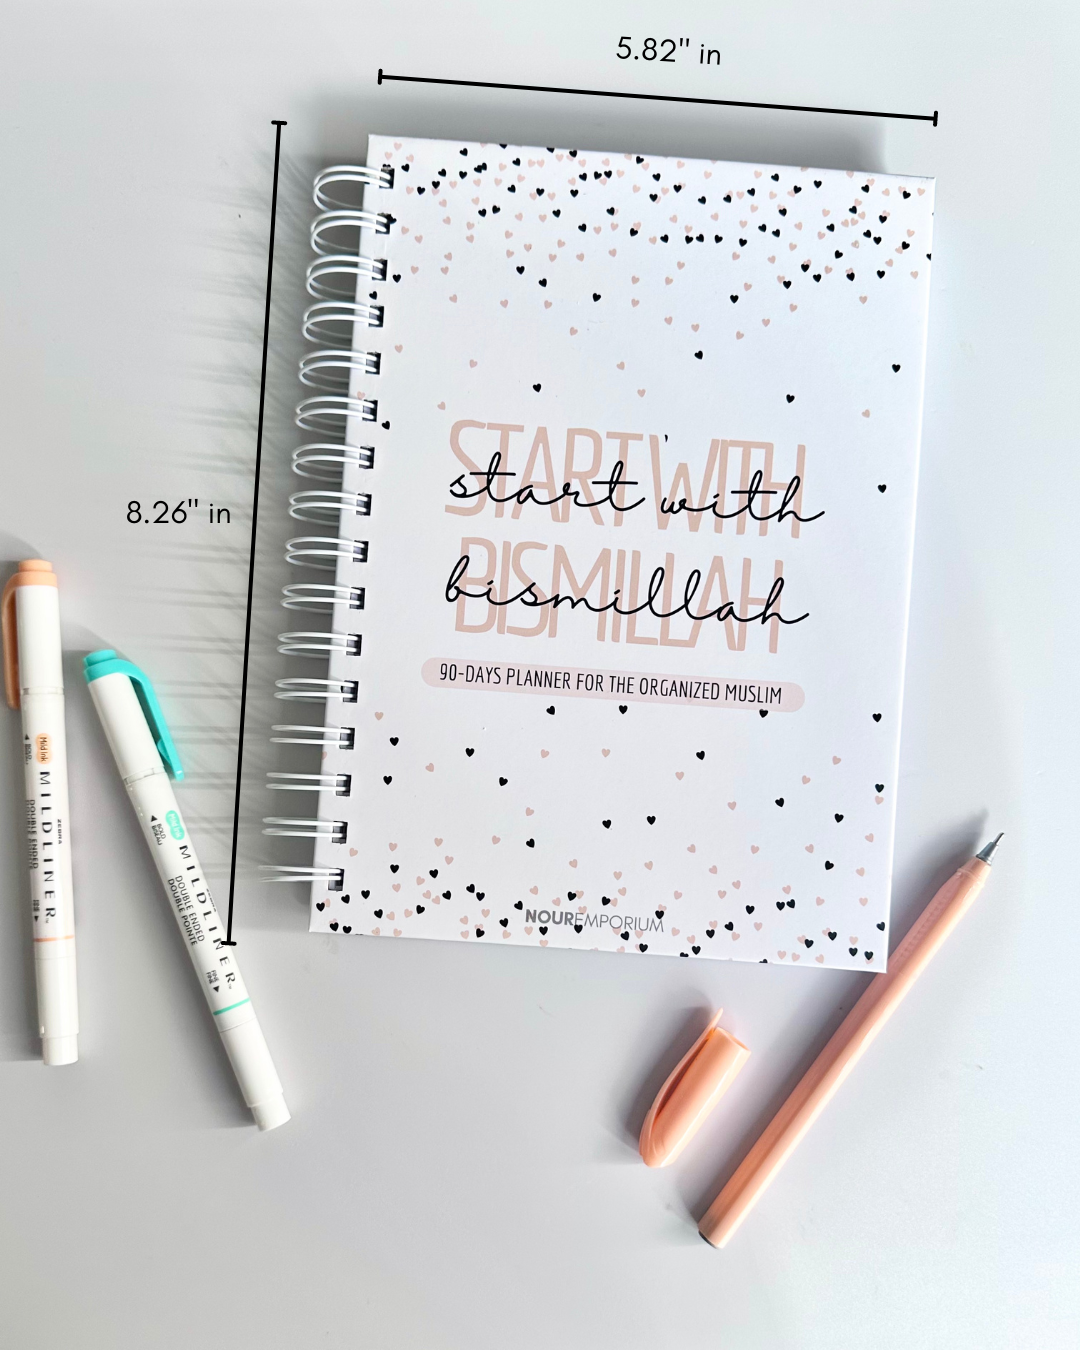 5.82" in
8.26" in
START WITH
start with
BISMILLAH
bismillah
90-DAYS PLANNER FOR THE ORGANIZED MUSLIM
NOUREMPORIUM
Mild ink
MILDLINER
ZEBRA
DOUBLE ENDED
MILDLINER
BOLD
DOUBLE ENDED
DOUBLE POINTE
FINE
FINE